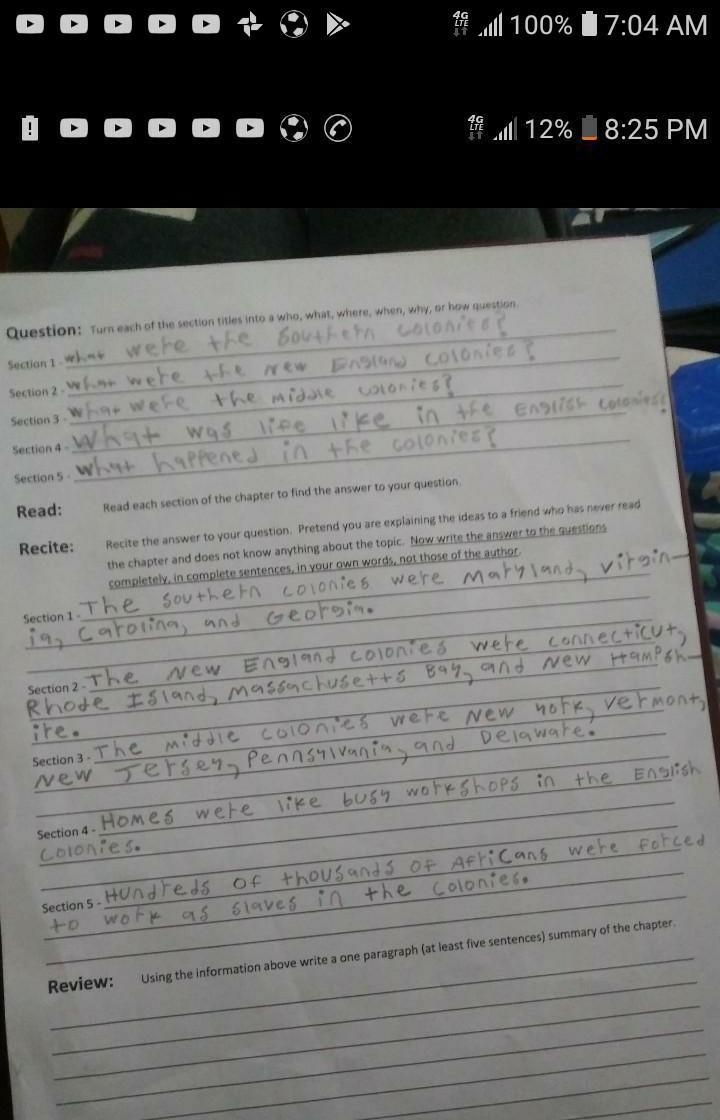 4G LTE 100% 7:04 AM
4G LTE 12% 8:25 PM
Question: Turn each of the section titles into a who, what, where, when, why, or how question.
Section 1 - what were the southern colonies?
Section 2 - what were the new England colonies?
Section 3 - what were the middle colonies?
Section 4 - What was life like in the English colonies?
Section 5 - what happened in the colonies?
Read: Read each section of the chapter to find the answer to your question.
Recite: Recite the answer to your question. Pretend you are explaining the ideas to a friend who has never read
the chapter and does not know anything about the topic. Now write the answer to the questions
completely, in complete sentences, in your own words, not those of the author.
Section 1 - The southern colonies were Maryland, Virgin-
ia, Carolina, and Georgia.
Section 2 - The New England colonies were connecticut,
Rhode Island, Massachusetts Bay, and New Hampsh-
ire.
Section 3 - The middle colonies were New York, Vermont,
New Jersey, Pennsylvania, and Delaware.
Section 4 - Homes were like busy workshops in the English
colonies.
Section 5 - Hundreds of thousands of Africans were forced
to work as slaves in the colonies.
Review: Using the information above write a one paragraph (at least five sentences) summary of the chapter.